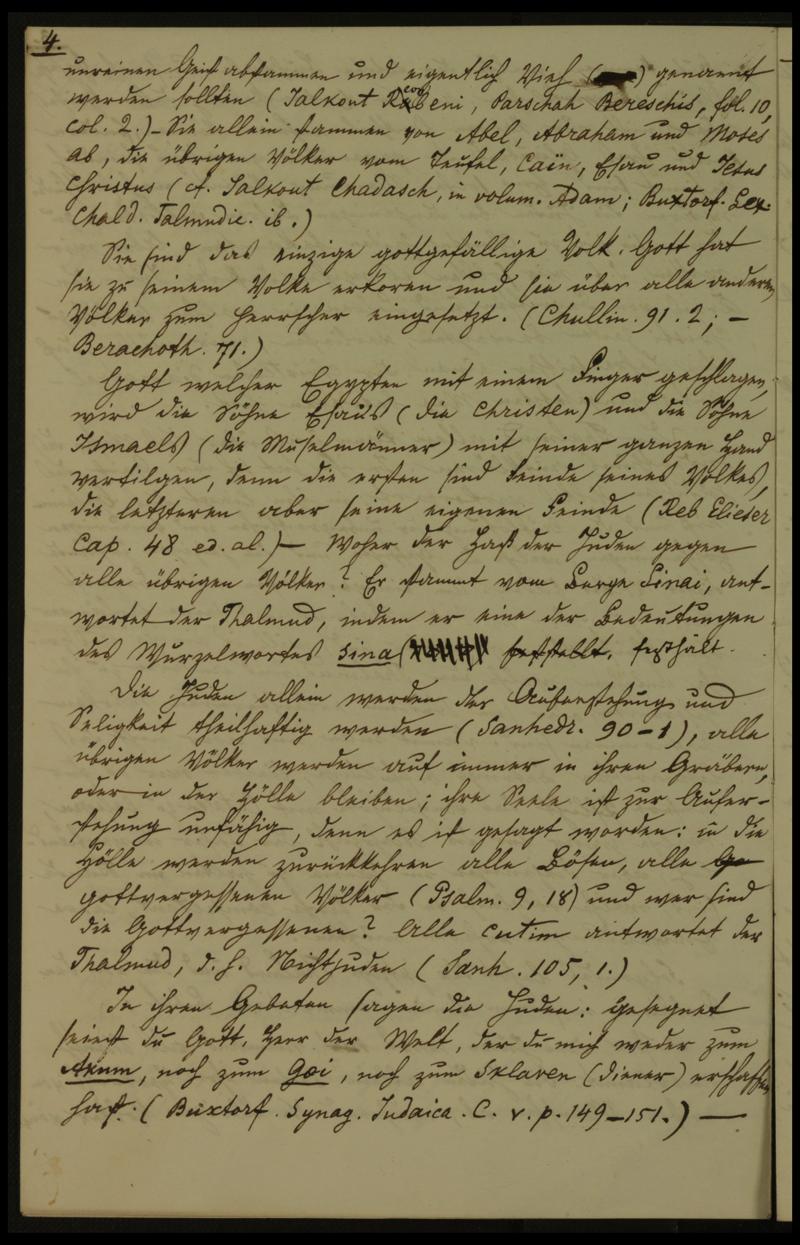 4.
unreinen Geist abstammen und eigentlich Vieh () genannt
werden sollten (Jalkout Reubeni, Parschah Bereschis, fol. 10,
col. 2.) – Sie allein stammen von Abel, Abraham und Moses
ab, die übrigen Völker vom Teufel, Caïn, Esau und Jesus
Christus (cf. Jalkout Chadasch, in volum. Adam; Buxtorf. Lex.
Chald. Talmudic. ib.)
Sie sind das einzige gottgefällige Volk. Gott hat
sie zu seinem Volke erkoren und sie über alle anderen
Völker zum Herrscher eingesetzt. (Chullin. 91. 2; –
Berachoth. 71.)
Gott welcher Egypten mit einem Finger geschlagen,
wird die Söhne Esaus (die Christen) und die Söhne
Ismaels (die Muselmänner) mit seiner ganzen Hand
vertilgen, denn die ersten sind Feinde seines Volkes,
die letzteren aber seine eigenen Feinde (Reb Elieser
Cap. 48 ed. al.) – Woher der Haß der Juden gegen
alle übrigen Völker? Er stammt vom Berge Sinai, ant-
wortet der Thalmud, indem er eine der Bedeutungen
des Wurzelwortes Sina feststellt, festhält.
Die Juden allein werden der Auferstehung und
Seligkeit theilhaftig werden (Sanhedr. 90–1), alle
übrigen Völker werden auf immer in ihren Gräbern,
oder in der Hölle bleiben; ihre Seele ist zur Aufer-
stehung unfähig, denn es ist gesagt worden: in die
Hölle werden zurückkehren alle Bösen, alle Go
gottvergessenen Völker (Psalm. 9, 18) und wer sind
die Gottvergessenen? Alle Cutim antwortet der
Thalmud, d. h. Nichtjuden (Sanh. 105, 1.)
In ihren Gebeten sagen die Juden: Gesegnet
seiest du Gott, Herr der Welt, der du mich weder zum
Akum, noch zum Goi, noch zum Sklaven (Diener) erschaffen
hast. (Buxtorf. Synag. Judaica. C. v. p. 149–151.) –